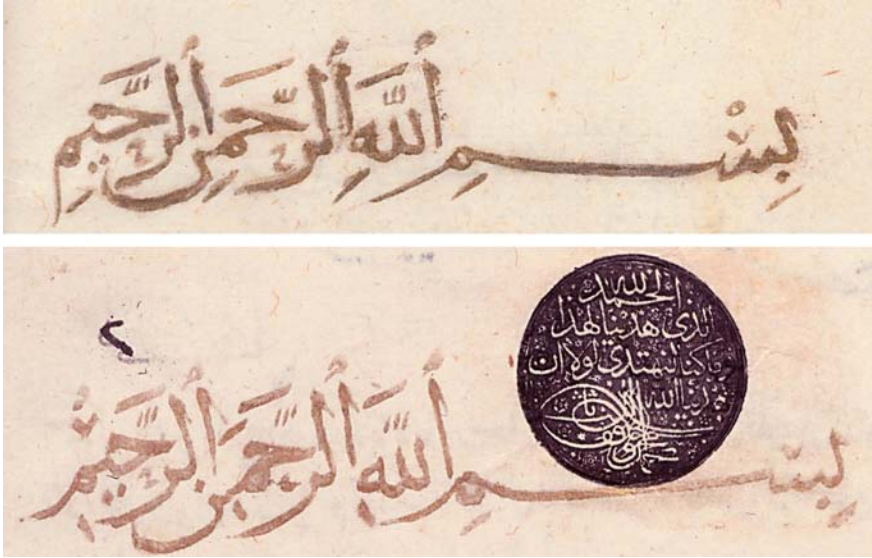 بِسْمِ اَللّٰهِ اَلرَّحْمٰنِ اَلرَّحِيمِ
الحمد لله
الذي هدينا لهذا
وما كنا لنهتدي لولا ان
هدينا الله
٢
بِسْمِ اَللّٰهِ اَلرَّحْمٰنِ اَلرَّحِيمِ